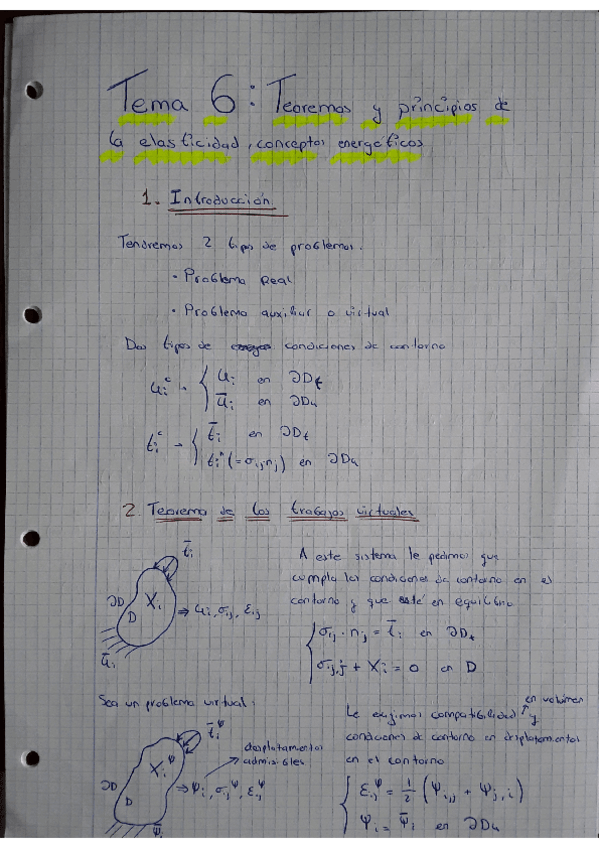 Tema 6: Teoremas y principios de
la elasticidad, conceptos energéticos
1. Introducción
Tendremos 2 tipos de problemas.
· Problema Real
· Problema auxiliar o virtual
Dos tipos de condiciones de contorno
uᵢᶜ → { uᵢ en ∂Dₜ
ūᵢ en ∂Dᵤ
tᵢᶜ → { t̄ᵢ en ∂Dₜ
tᵢⁿ (= σᵢⱼnⱼ) en ∂Dᵤ
2. Teorema de los trabajos virtuales
t̄ᵢ
∂D
Xᵢ
D
→ uᵢ, σᵢⱼ, εᵢⱼ
ūᵢ
A este sistema le pedimos que
cumpla las condiciones de contorno en el
contorno y que esté en equilibrio
{ σᵢⱼ · nⱼ = t̄ᵢ en ∂Dₜ
σᵢⱼ,ⱼ + Xᵢ = 0 en D
Sea un problema virtual:
t̄ᵢᵠ
desplazamientos
admisibles
∂D
Xᵢᵠ
D
→ φᵢ, σᵢⱼᵠ, εᵢⱼᵠ
φ̄ᵢ
en volúmen
Le exigimos compatibilidad y
condiciones de contorno en desplazamientos
en el contorno
{ εᵢⱼᵠ = 1/2 (φᵢ,ⱼ + φⱼ,ᵢ)
φᵢ = φ̄ᵢ en ∂Dᵤ